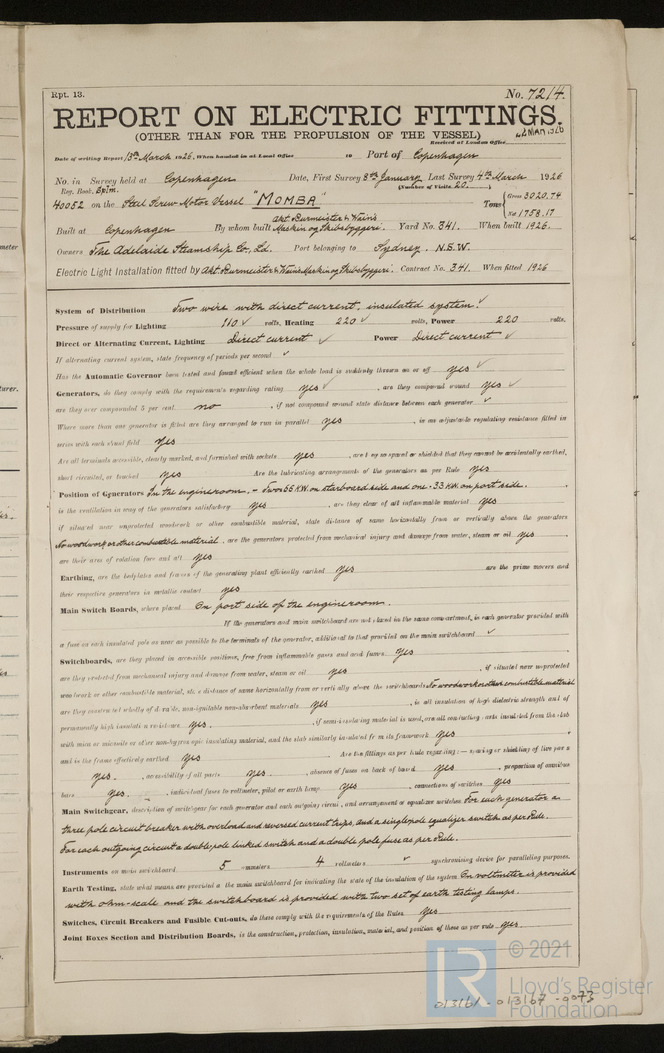 Rpt. 13.
No. 7214.
REPORT ON ELECTRIC FITTINGS.
(OTHER THAN FOR THE PROPULSION OF THE VESSEL)
Received at London Office
22 MAR 1926
Date of writing Report 13th March 1926. When handed in at Local Office 19 Port of Copenhagen
No. in Survey held at Copenhagen Date, First Survey 8th January Last Survey 4th March 1926
Reg. Book. (Number of Visits 20.)
40052 on the Steel Screw Motor Vessel "MOMBA" Tons { Gross 3020.74
Net 1758.17
Built at Copenhagen By whom built Akt. Burmeister & Wain's Maskin og Skibsbyggeri. Yard No. 341. When built 1926.
Owners The Adelaide Steamship Co., Ld. Port belonging to Sydney, N.S.W.
Electric Light Installation fitted by Akt. Burmeister & Wain's Maskin og Skibsbyggeri. Contract No. 341. When fitted 1926
System of Distribution Two wire with direct current, insulated system. ✓
Pressure of supply for Lighting 110 ✓ volts, Heating 220 ✓ volts, Power 220 volts.
Direct or Alternating Current, Lighting Direct current ✓ Power Direct current ✓
If alternating current system, state frequency of periods per second ✓
Has the Automatic Governor been tested and found efficient when the whole load is suddenly thrown on or off yes ✓
Generators, do they comply with the requirements regarding rating yes ✓, are they compound wound yes ✓
are they over compounded 5 per cent. no, if not compound wound state distance between each generator ✓
Where more than one generator is fitted are they arranged to run in parallel yes, is an adjustable regulating resistance fitted in
series with each shunt field yes
Are all terminals accessible, clearly marked, and furnished with sockets yes, are they so spaced or shielded that they cannot be accidentally earthed,
short circuited, or touched yes Are the lubricating arrangements of the generators as per Rule yes
Position of Generators In the engineroom. - Two 55 K.W. on starboard side and one - 33 K.W. on port side.
is the ventilation in way of the generators satisfactory yes, are they clear of all inflammable material yes
if situated near unprotected woodwork or other combustible material, state distance of same horizontally from or vertically above the generators
No woodwork or other combustible material, are the generators protected from mechanical injury and damage from water, steam or oil yes
are their axes of rotation fore and aft yes
Earthing, are the bedplates and frames of the generating plant efficiently earthed yes are the prime movers and
their respective generators in metallic contact yes
Main Switch Boards, where placed On port side of the engineroom.
If the generators and main switchboard are not placed in the same compartment, is each generator provided with
a fuse on each insulated pole as near as possible to the terminals of the generator, additional to that provided on the main switchboard ✓
Switchboards, are they placed in accessible positions, free from inflammable gases and acid fumes yes
are they protected from mechanical injury and damage from water, steam or oil yes, if situated near unprotected
woodwork or other combustible material, state distance of same horizontally from or vertically above the switchboards No woodwork or other combustible material
are they constructed wholly of durable, non-ignitable non-absorbent materials yes, is all insulation of high dielectric strength and of
permanently high insulation resistance yes., if semi-insulating material is used, are all conducting parts insulated from the slab
with mica or micanite or other non-hygroscopic insulating material, and the slab similarly insulated from its framework yes
and is the frame effectively earthed yes Are the fittings as per Rule regarding:— spacing or shielding of live parts
yes., accessibility of all parts yes., absence of fuses on back of board yes, proportion of omnibus
bars yes., individual fuses to voltmeter, pilot or earth lamp yes, connections of switches yes
Main Switchgear, description of switchgear for each generator and each outgoing circuit, and arrangement of equalizer switches For each generator a
three pole circuit breaker with overload and reversed current trips, and a single pole equalizer switch as per Rule.
For each outgoing circuit a double-pole linked switch and a double pole fuse as per Rule.
Instruments on main switchboard 5 ammeters 4 voltmeters ✓ synchronising device for paralleling purposes.
Earth Testing, state what means are provided at the main switchboard for indicating the state of the insulation of the system One voltmeter is provided
with ohm-scale and the switchboard is provided with two set of earth testing lamps.
Switches, Circuit Breakers and Fusible Cut-outs, do these comply with the requirements of the Rules yes
Joint Boxes Section and Distribution Boards, is the construction, protection, insulation, material, and position of these as per rule yes.
LR © 2021
Lloyd's Register
Foundation
013161-013167-0073